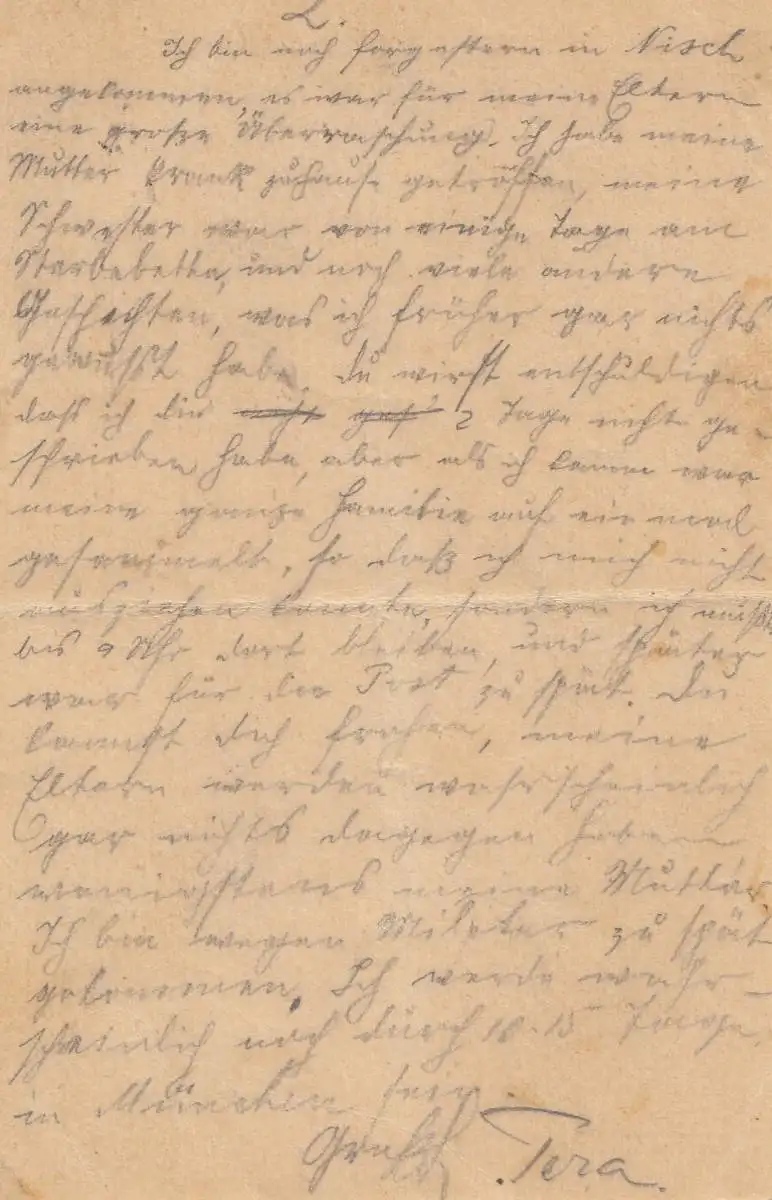 L.
Ich bin noch forgestern in Nisch
angekommen, es war für meine Eltern
eine große Überraschung. Ich habe meine
Mutter krank zuhause getroffen, meine
Schwester war von einige Tage am
Sterbebette, und noch viele andere
Geschichten, was ich früher gar nichts
gewußt habe. Du wirst entschuldigen
daß ich dir nicht 2 Tage nicht ge-
schrieben habe, aber als ich kamm war
meine ganze Familie auf ein mal
gesammelt, so daß ich mich nicht
ausziehen konnte, sondern ich mußte
bis 9 Uhr dort bleiben, und später
war für die Post zu spät. Du
kannst dich frohen, meine
Eltern werden wahrscheinlich
gar nichts dagegen haben
wenigstens meine Mutter
Ich bin wegen Militer zu spät
gekommen. Ich werde wahr-
scheinlich noch durch 15 Tage
in München sein.
Gruß Tera.